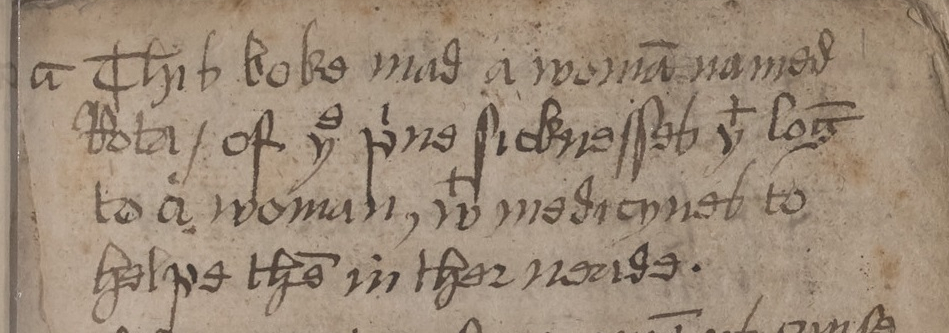 a This boke mad a womā named
Rota / of yͤ pͥue sicknesses yͭ lōg
to a woman, wͭ medicynes to
helpe thē in ther neade.